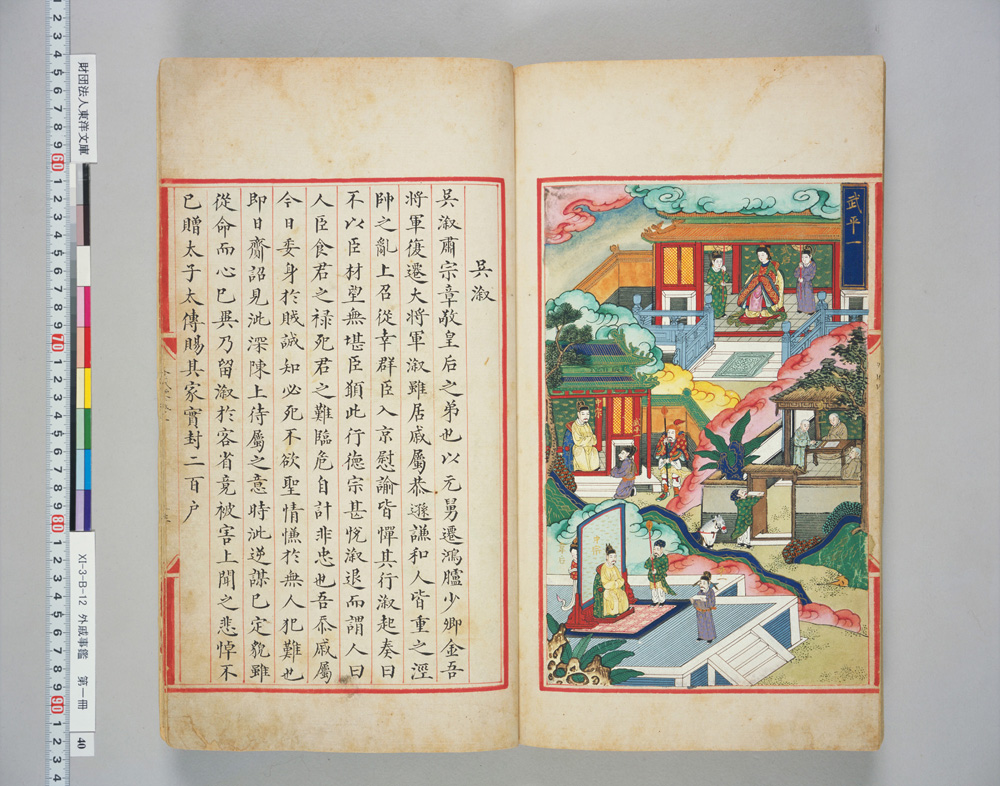 武平一
中宗
中宗
吳溆
吳溆肅宗章敬皇后之弟也以元舅遷鴻臚少卿金吾
將軍復遷大將軍溆雖居戚屬恭遜謙和人皆重之涇
帥之亂上召從幸群臣入京慰諭皆憚其行溆起奏曰
不以臣材望無堪臣願此行德宗甚悅溆退而謂人曰
人臣食君之禄死君之難臨危自計非忠也吾忝戚屬
今日委身於賊誠知必死不欲聖情慊於無人犯難也
即日齎詔見泚深陳上待屬之意時泚逆謀已定貌雖
從命而心已異乃留溆於客省竟被害上聞之悲悼不
已贈太子太傅賜其家實封二百户
財団法人東洋文庫
XI-3-B-12 外戚事鑑 第一冊
40